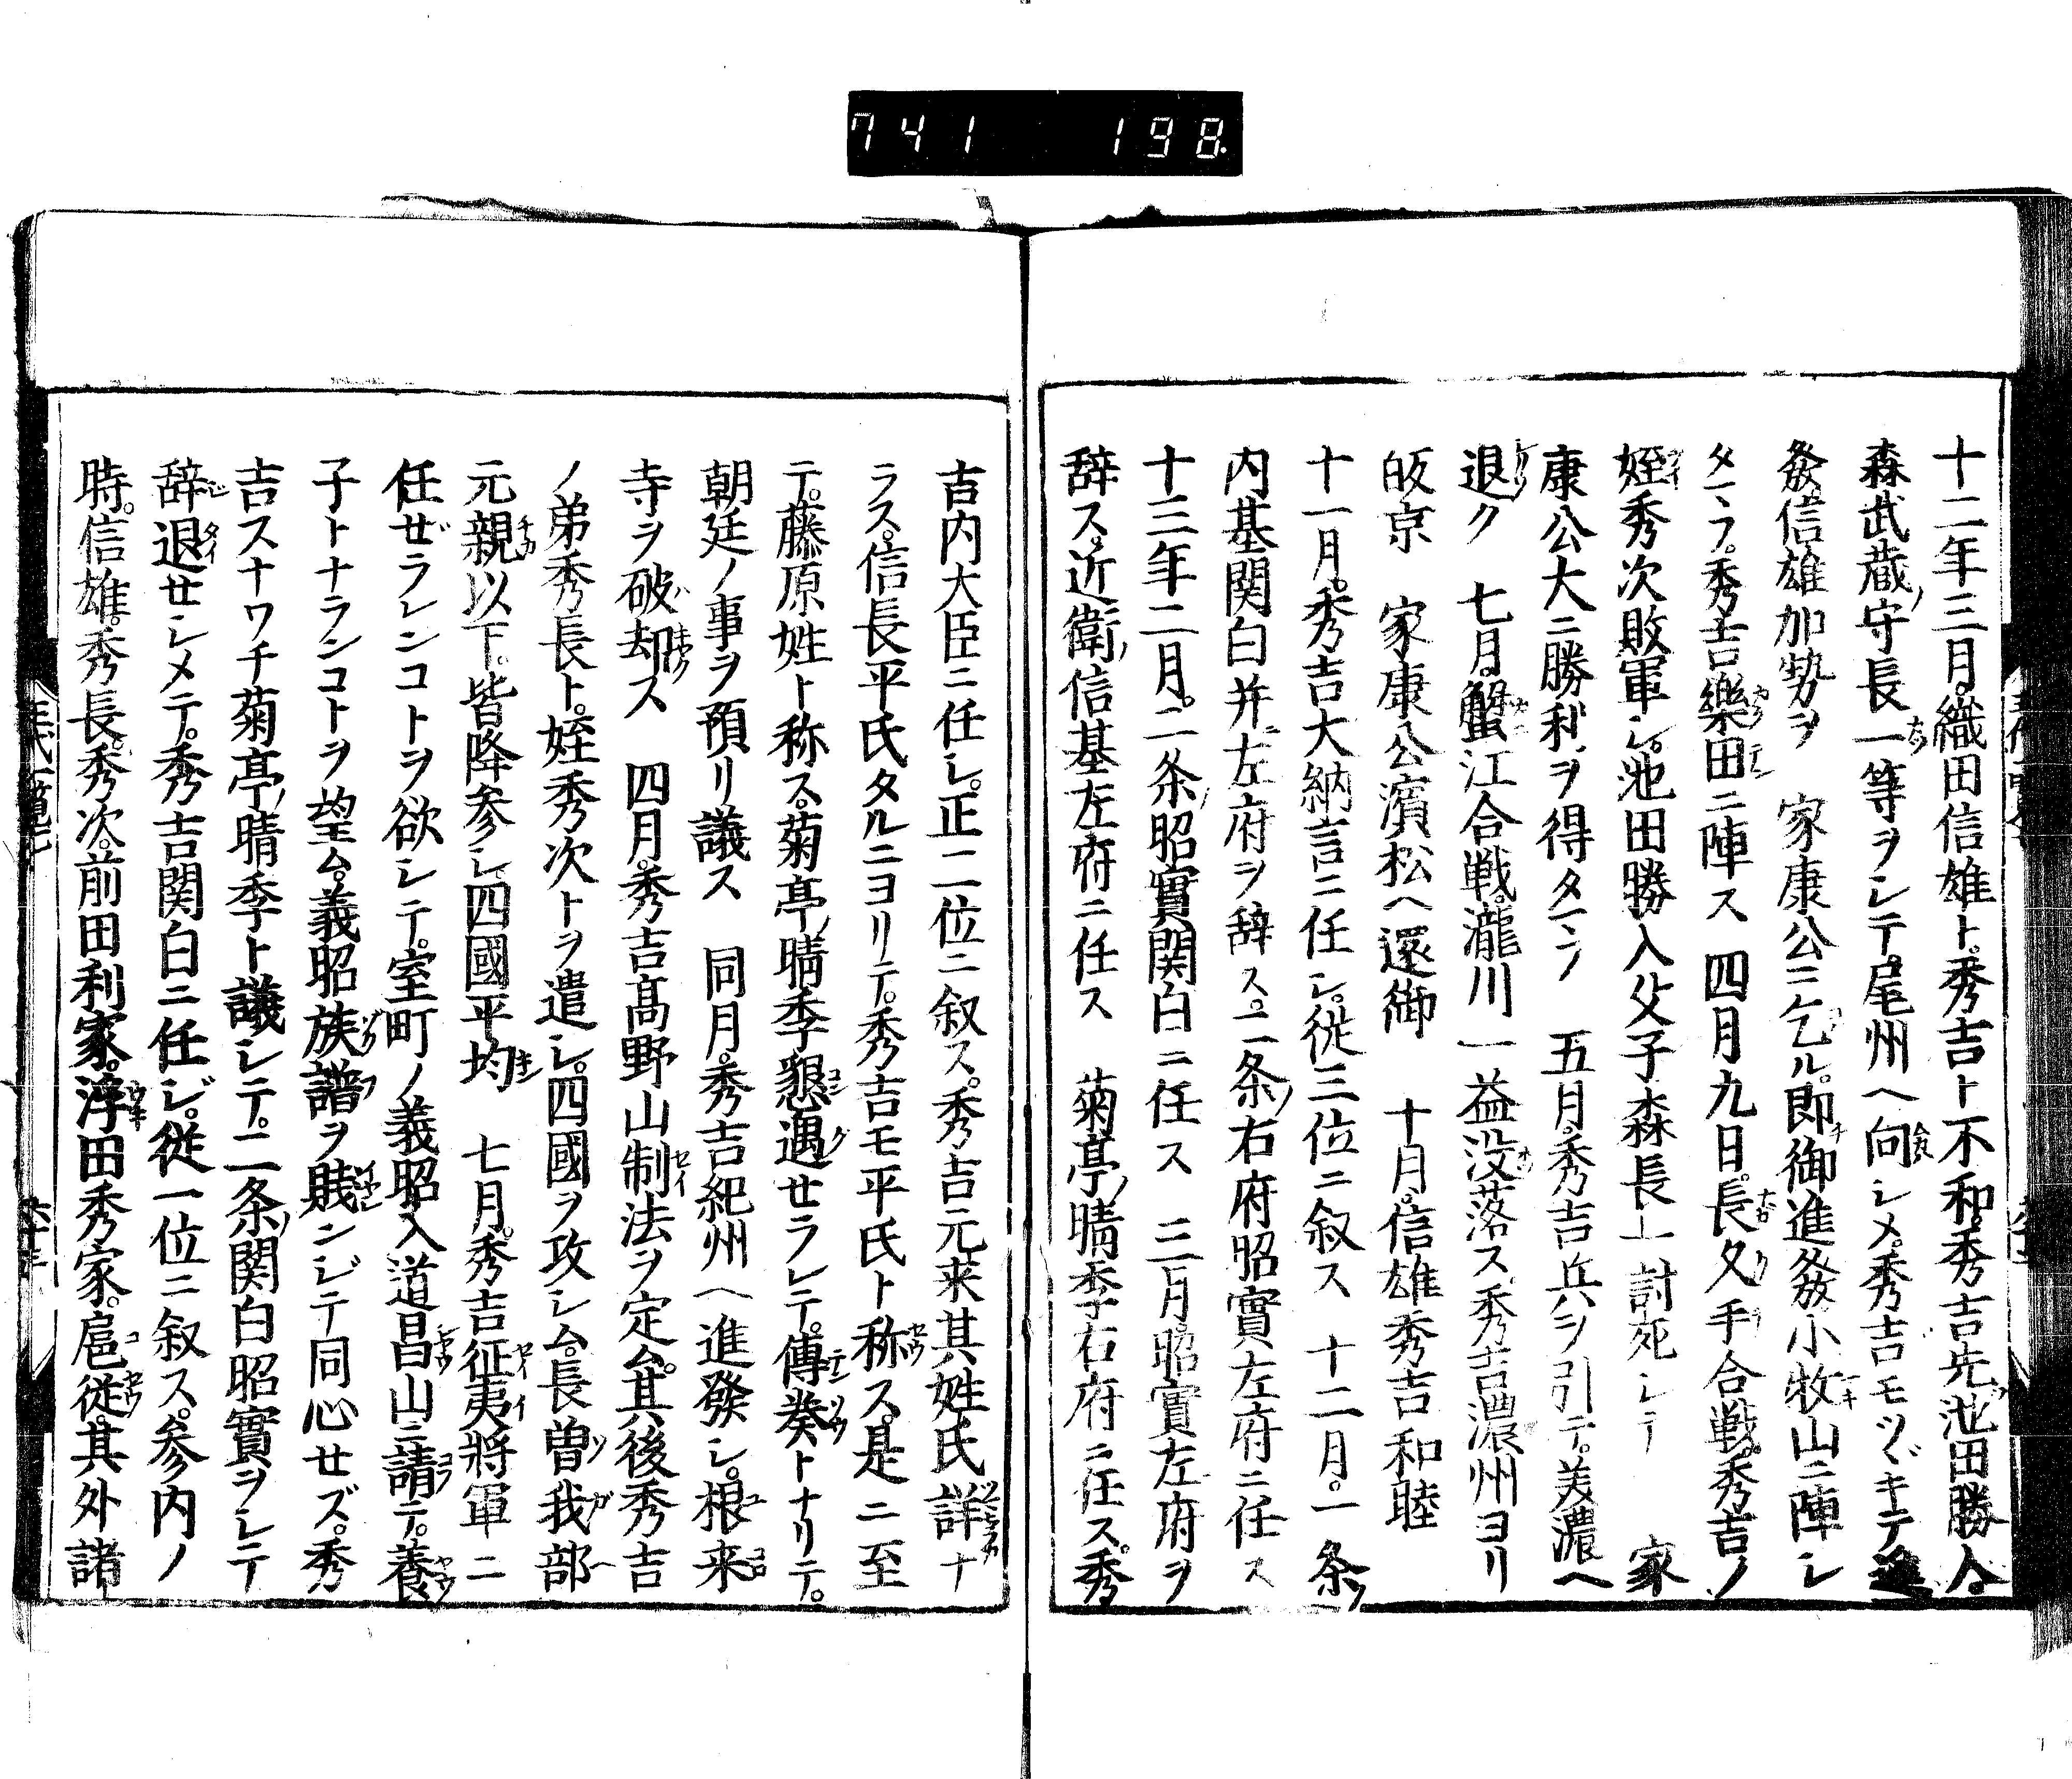 741 198
十二年三月。織田信雄ト。秀吉ト不和。秀吉先池田勝入。
森武蔵守長一等ヲシテ。尾州ヘ向シメ。秀吉モツヾキテ進
發信雄加勢ヲ 家康公ニ乞ル。即御進發小牧山ニ陣シ
タマフ。秀吉樂田ニ陣ス 四月九日。長久手合戦。秀吉ノ
姪秀次敗軍シ。池田勝入父子森長一討死シテ 家
康公大ニ勝利ヲ得タマフ 五月。秀吉兵ヲ引テ。美濃ヘ
退ク 七月。蟹江合戦。瀧川一益没落ス秀吉濃州ヨリ
皈京 家康公濱松ヘ還御 十月。信雄秀吉和睦
十一月。秀吉大納言ニ任シ。従三位ニ叙ス 十二月。一条ノ
内基関白并左府ヲ辞ス。二条ノ右府昭實左府ニ任ス
十三年二月。二条ノ昭實関白ニ任ス 三月。昭實左府ヲ
辞ス。近衛ノ信基左府ニ任ス 菊亭ノ晴季右府ニ任ス。秀
吉内大臣ニ任シ。正二位ニ叙ス。秀吉元来其姓氏詳ナ
ラス。信長平氏タルニヨリテ。秀吉モ平氏ト称ス。是ニ至
テ。藤原姓ト称ス。菊亭ノ晴季懇遇セラレテ。傳奏トナリテ。
朝廷ノ事ヲ預リ議ス 同月。秀吉紀州ヘ進發シ。根来
寺ヲ破却ス 四月。秀吉髙野山制法ヲ定ム。其後秀吉
ノ弟秀長ト。姪秀次トヲ遣シ。四國ヲ攻シム。長曽我部
元親以下。皆降参シ。四國平均 七月。秀吉征夷将軍ニ
任ゼラレンコトヲ欲シテ。室町ノ義昭入道昌山ニ請テ。養
子トナランコトヲ望ム。義昭族譜ヲ賎ンジテ同心セズ。秀
吉スナワチ菊亭ノ晴季ト議シテ。二条ノ関白昭實ヲシテ
辞退セシメテ。秀吉関白ニ任ジ。従一位ニ叙ス。参内ノ
時。信雄。秀長。秀次。前田利家。浮田秀家。扈従。其外諸